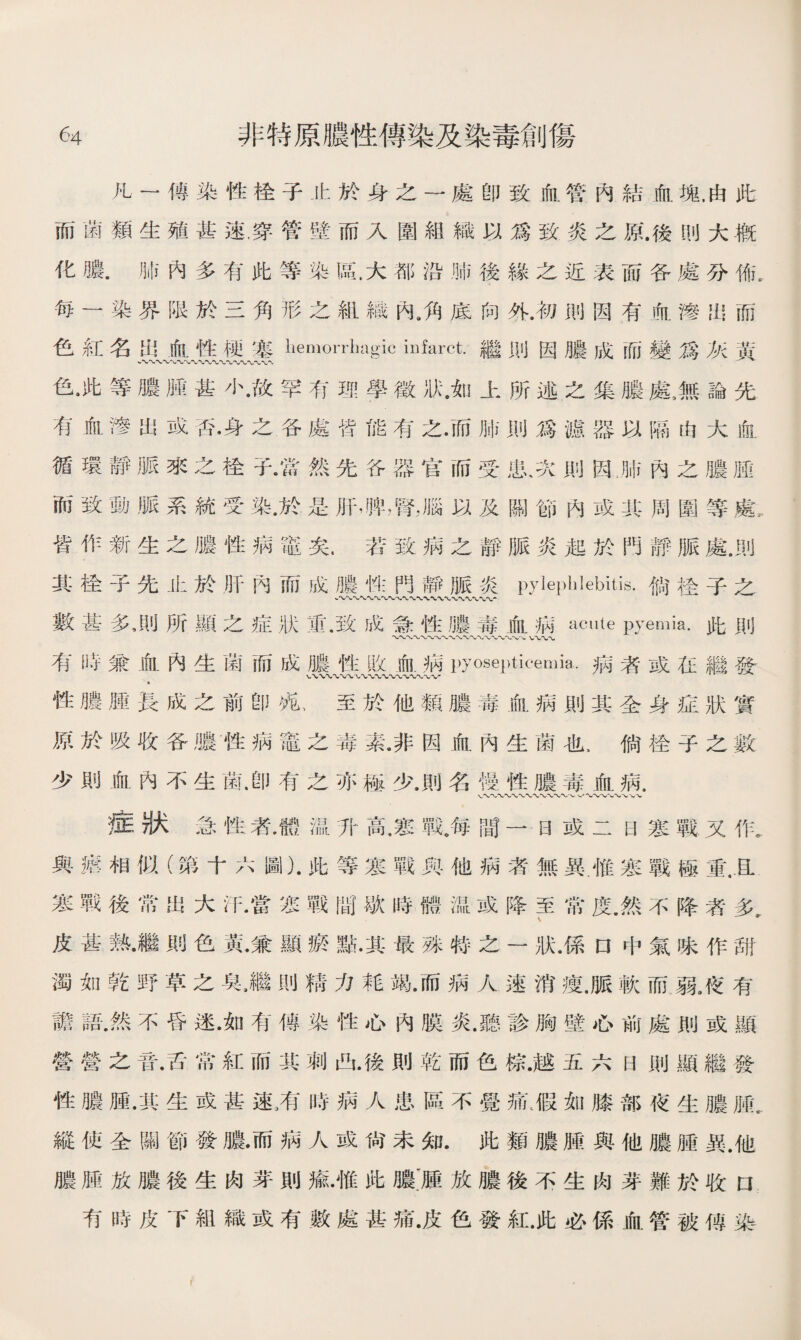 64 非特原膿性傳染及染毒創傷
凡一傳染性栓子止於身之一處卽致血管內結血塊.由此
而菌類生殖甚速.穿管壁而入圍組織以爲致炎之原.後則大槪
化膿. 肺內多有此等染區.大都沿肺後緣之近表面各處分佈.
每一染界限於三角形之組織內.角底向外.初則因有血滲出而
色紅名出血性梗塞 hemorrhagic infarct. 繼則因膿成而變爲灰黃
色.此等膿腫甚小.故罕有理學徵狀.如上所述之集膿處,無論先
有血滲出或否.身之各處皆能有之.而肺則爲濾器以隔由大血
循環靜脈來之栓子.當然先各器官而受患.次則因肺內之膿腫
而致動脈系統受染.於是肝,脾,腎,腦以及關節內或其周圍等處.
皆作新生之膿性病竈矣. 若致病之靜脈炎起於門靜脈處.則
其栓子先止於肝內而成膿性門靜脈炎 pylephlebitis. 倘栓子之
數甚多,則所顯之症狀重.致成急性膿毒血病 acute pyemia. 此則
有時兼血內生菌而成膿性敗血病 pyosepticemia. 病者或在繼發
性膿腫長成之前卽死. 至於他類膿毒血病則其全身症狀實
原於吸收各膿性病竈之毒素.非因血內生菌也. 倘栓子之數
少則血內不生菌.卽有之亦極少.則名慢性膿毒血病.
症狀 急性者.體溫升高.寒戰.每間一日或二日寒戰又作.
與瘧相似(第十六圖).此等寒戰與他病者無異.惟寒戰極重.且
寒戰後常出大汗.當寒戰間歇時體溫或降至常度.然不降者多.
皮甚熱.繼則色黃.兼顯瘀點.其最殊特之一狀.係口中氣味作甜
濁如乾野草之臭,繼則精力耗竭.而病人速消瘦.脈軟而弱.夜有
譫語.然不昏迷.如有傳染性心內膜炎.聽診胸壁心前處則或顯
營營之音.舌常紅而其刺凸.後則乾而色棕.越五六日則顯繼發
性膿腫.其生或甚速,有時病人患區不覺痛.假如膝部夜生膿腫.
縱使全關節發膿.而病人或尙未知. 此類膿腫與他膿腫異.他
膿腫放膿後生肉芽則瘉.惟此膿腫放膿後不生肉芽難於收口
有時皮下組織或有數處甚痛.皮色發紅.此必係血管被傳染